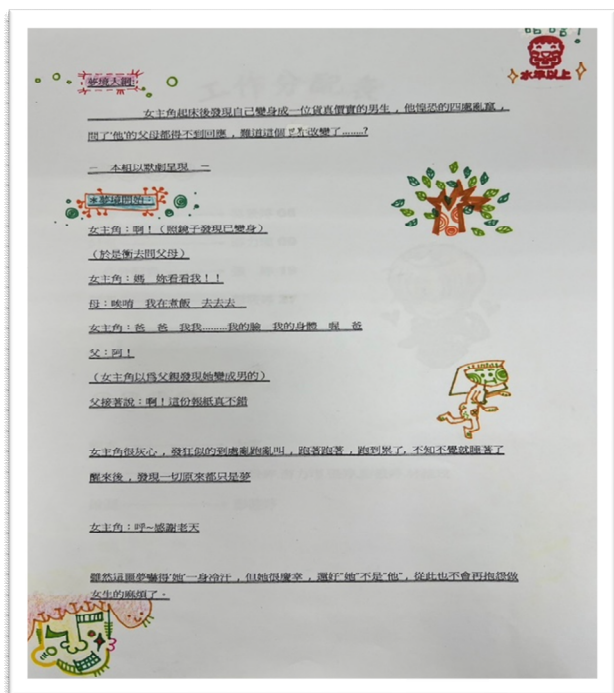 水準以上
夢境大綱:
女主角起床後發現自己變身成一位貨真價實的男生,他惶恐的四處亂竄,
問了'他'的父母都得不到回應,難道這個 改變了........?
= 本組以默劇呈現 =
本夢境開始:
女主角:啊!(照鏡子發現已變身)
(於是衝去問父母)
女主角:媽 妳看看我!!
母:唉唷 我在煮飯 去去去
女主角:爸 爸 我我.........我的臉 我的身體 喔 爸
父:阿!
(女主角以為父親發現她變成男的)
父接著說:啊!這份報紙真不錯
女主角很灰心,發狂似的到處亂跑亂叫,跑著跑著,跑到累了,不知不覺就睡著了
醒來後,發現一切原來都只是夢
女主角:呼~感謝老天
雖然這噩夢嚇得"她"一身冷汗,但她很慶幸,還好"她"不是"他",從此也不會再抱怨做
女生的麻煩了。